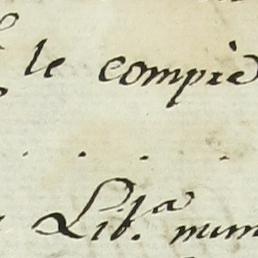 le compiè
. . . .
Lib.ª num